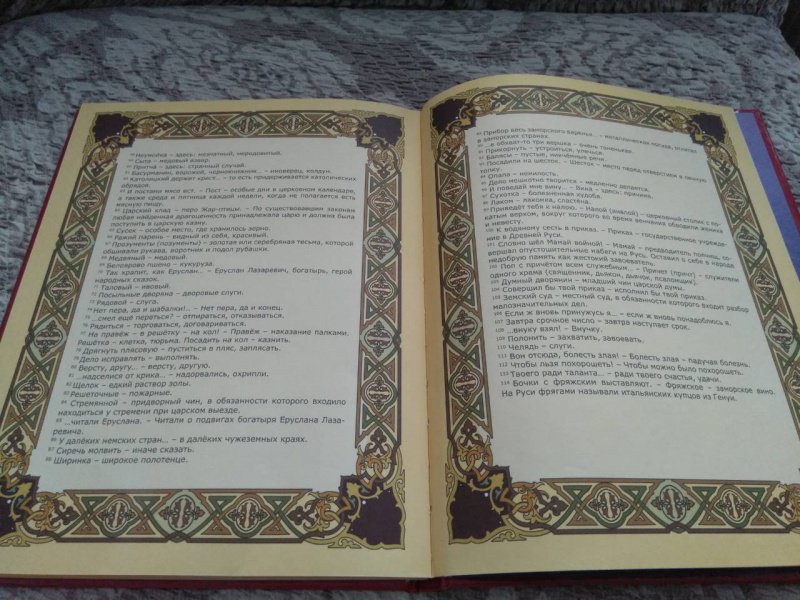 Неумойка – здесь: незнатный, неродовитый.
Сыта – медовый взвар.
Притча – здесь: странный случай.
Басурманин, ворожей, чернокнижник... – иноверец, колдун.
Католицкий держит крест... – то есть придерживается католических
обрядов.
И постами мясо ест. – Пост – особые дни в церковном календаре,
а также среда и пятница каждой недели, когда не полагается есть
мясную пищу.
Царский клад – перо Жар-птицы. – По существовавшим законам
любая найденная драгоценность принадлежала царю и должна была
поступить в царскую казну.
Сусек – особое место, где хранилось зерно.
Ражий парень – видный из себя, красивый.
Прозументы (позументы) – золотая или серебряная тесьма, которой
обшивали рукава, воротник и подол рубашки.
Медвяный – медовый.
Белоярово пшено – кукуруза.
Так храпит, как Еруслан... – Еруслан Лазаревич, богатырь, герой
народных сказок.
Таловый – ивовый.
Посыльные дворяна – дворовые слуги.
Рядовой – слуга.
Нет пера, да и шабалки!.. – Нет пера, да и конец.
...смел ещё переться? – отпираться, отказываться.
76 Рядиться – торговаться, договариваться.
На правёж – в решётку – на кол! – Правёж – наказание палками.
Решётка – клетка, тюрьма. Посадить на кол – казнить.
Дрягнуть плясовую – пуститься в пляс, заплясать.
79 Дело исправлять – выполнять.
80 Версту, другу... – версту, другую.
81 ...надселися от крика... – надорвались, охрипли.
82 Щелок – едкий раствор золы.
83 Решеточные – пожарные.
84 Стремянной – придворный чин, в обязанности которого входило
находиться у стремени при царском выезде.
85 ...читали Еруслана. – Читали о подвигах богатыря Еруслана Лаза-
ревича.
86 У далёких немских стран... – в далёких чужеземных краях.
87 Сиречь молвить – иначе сказать.
88 Ширинка – широкое полотенце.
89 Прибор весь заморского варенья... – металлическая посуда, отлитая
в заморских странах.
...в обхват-то три вершка – очень тоненькие.
Прикорнуть – устроиться, улечься.
Балясы – пустые, никчёмные речи.
Посадили на шесток. – Шесток – место перед отверстием в печную
топку.
Опала – немилость.
Дело мешкотно творится – медленно делается.
И поведай мне вину... – Вина – здесь: причина.
Сухотка – болезненная худоба.
Лаком – лакомка, сластёна.
Приведёт тебя к налою, – Налой (аналой) – церковный столик с по-
катым верхом, вокруг которого во время венчания обводили жениха
и невесту.
К водяному сесть в приказ. – Приказ – государственное учрежде-
ние в Древней Руси.
Словно шёл Мамай войной! – Мамай – предводитель полчищ, со-
вершал опустошительные набеги на Русь. Оставил о себе в народе
недобрую память как жестокий завоеватель.
Поп с причётом всем служебным... – Причет (причт) – служители
одного храма (священник, дьякон, дьячок, псаломщик).
Думный дворянин – младший чин царской думы.
104 Совершил бы твой приказ – исполнил бы твой приказ.
105 Земский суд – местный суд, в обязанности которого входит разбор
малозначительных дел.
106 Если ж вновь принужусь я... – если ж вновь понадоблюсь я.
107 Завтра срочное число – завтра наступает срок.
108 ...внуку взял! – Внучку.
109 Полонить – захватить, завоевать.
110 Челядь – слуги.
111 Вон отсюда, болесть злая! – Болесть злая – падучая болезнь.
112 Чтобы льзя похорошеть! – Чтобы можно было похорошеть.
113 Твоего ради таланта... – ради твоего счастья, удачи.
114 Бочки с фряжским выставляют. – Фряжское – заморское вино.
На Руси фрягами называли итальянских купцов из Генуи.